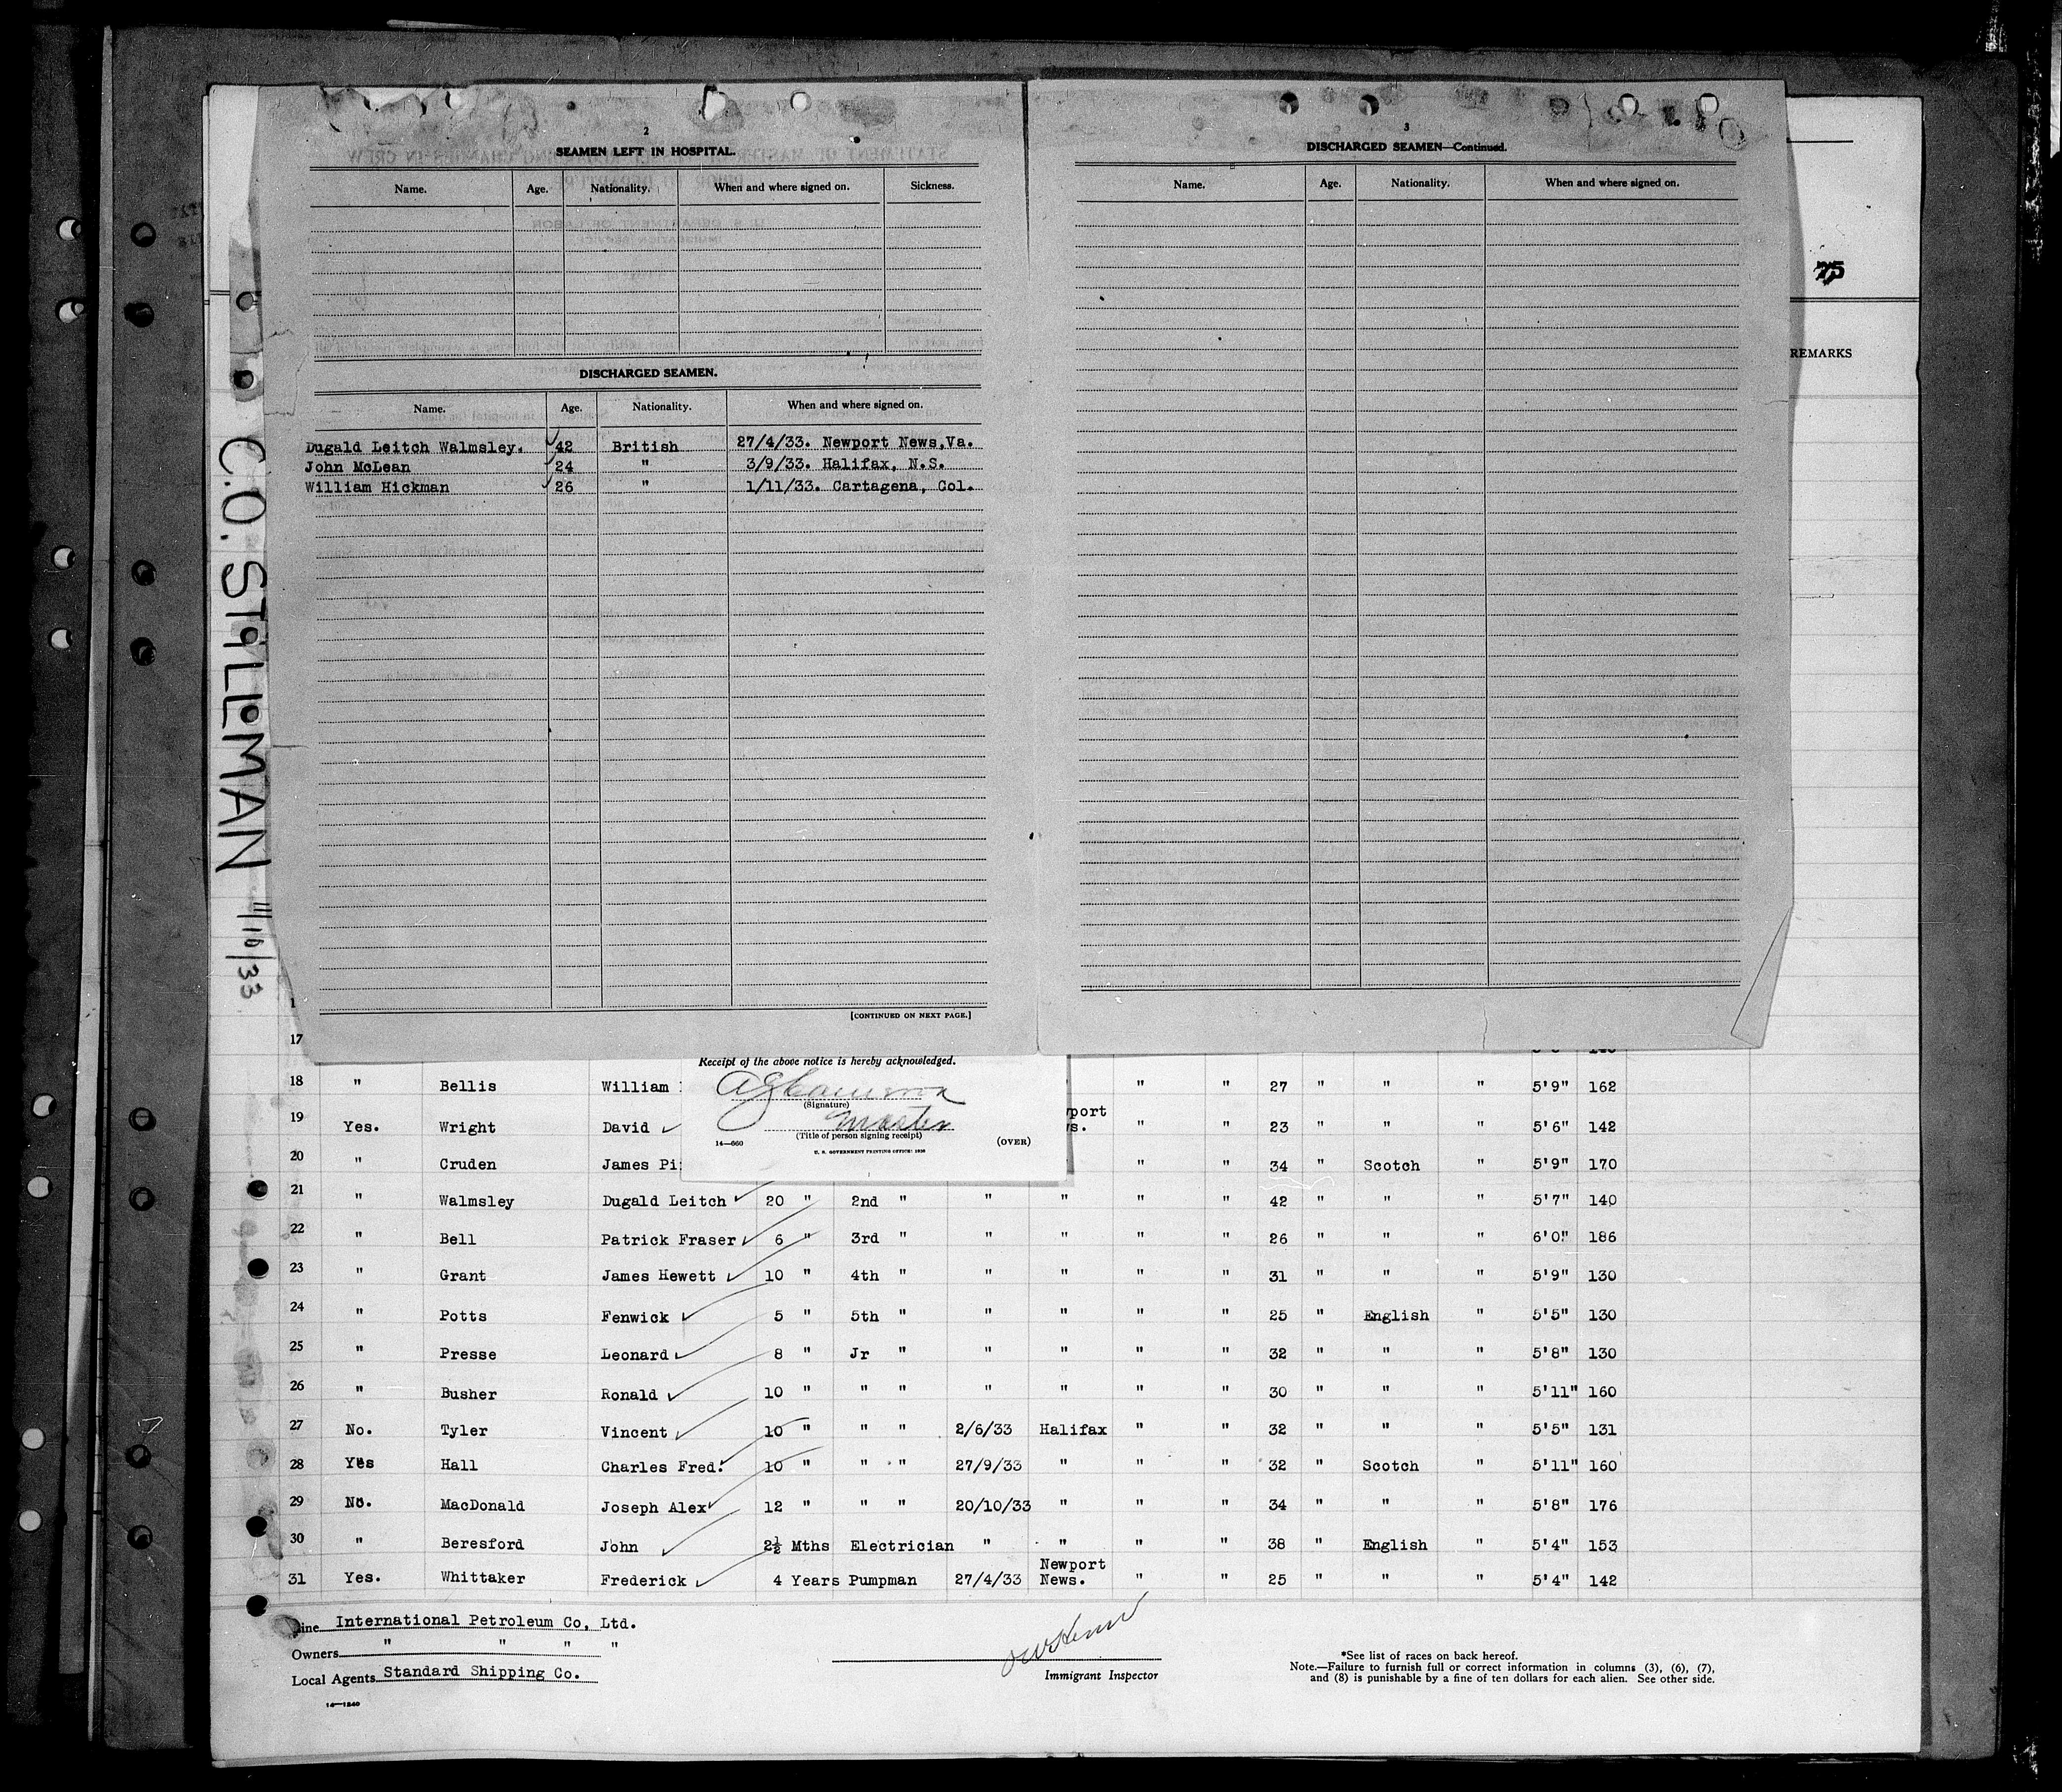 2
SEAMEN LEFT IN HOSPITAL.
Name. Age. Nationality. When and where signed on. Sickness.
DISCHARGED SEAMEN.
Name. Age. Nationality. When and where signed on.
Dugald Leitch Walmsley. 42 British 27/4/33. Newport News,Va.
John McLean 24 " 3/9/33. Halifax, N.S.
William Hickman 26 " 1/11/33. Cartagena, Col.
[CONTINUED ON NEXT PAGE.]
3
DISCHARGED SEAMEN—Continued.
Name. Age. Nationality. When and where signed on.
75
REMARKS
C.O. STILLMAN 11/10/33
Receipt of the above notice is hereby acknowledged.
(Signature)
Master
(Title of person signing receipt)
14—660 (OVER)
U. S. GOVERNMENT PRINTING OFFICE:
17
18 " Bellis William " " 27 " " " 5'9" 162
19 Yes. Wright David " " 23 " " " 5'6" 142
20 " Cruden James " " 34 " Scotch " 5'9" 170
21 " Walmsley Dugald Leitch 20 " 2nd " " " " " 42 " " " 5'7" 140
22 " Bell Patrick Fraser 6 " 3rd " " " " " 26 " " " 6'0" 186
23 " Grant James Hewett 10 " 4th " " " " " 31 " " " 5'9" 130
24 " Potts Fenwick 5 " 5th " " " " " 25 " English " 5'5" 130
25 " Presse Leonard 8 " Jr " " " " " 32 " " " 5'8" 130
26 " Busher Ronald 10 " " " " " " " 30 " " " 5'11" 160
27 No. Tyler Vincent 10 " " " 2/6/33 Halifax " " 32 " " " 5'5" 131
28 Yes Hall Charles Fred. 10 " " " 27/9/33 " " " 32 " Scotch " 5'11" 160
29 No. MacDonald Joseph Alex 12 " " " 20/10/33 " " " 34 " " " 5'8" 176
30 " Beresford John 2½ Mths Electrician " " " " 38 " English " 5'4" 153
31 Yes. Whittaker Frederick 4 Years Pumpman 27/4/33 Newport News. " " 25 " " " 5'4" 142
Line International Petroleum Co, Ltd.
Owners " " " "
Local Agents Standard Shipping Co.
14—1240
Immigrant Inspector
*See list of races on back hereof.
Note.—Failure to furnish full or correct information in columns (3), (6), (7),
and (8) is punishable by a fine of ten dollars for each alien. See other side.